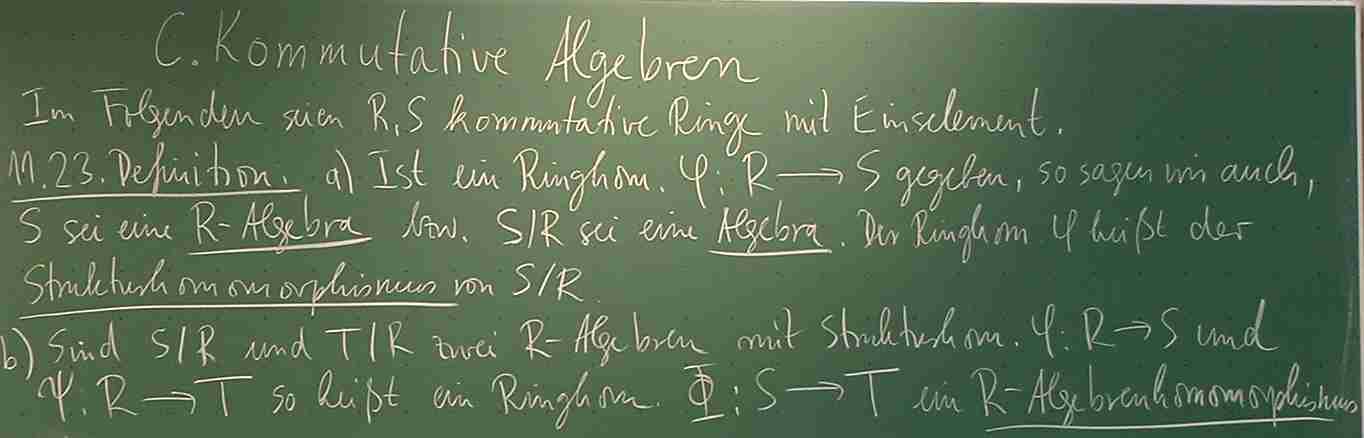 C. Kommutative Algebren
Im Folgenden seien R, S kommutative Ringe mit Einselement.
11.23. Definition. a) Ist ein Ringhom. φ: R → S gegeben, so sagen wir auch,
S sei eine R-Algebra bzw. S/R sei eine Algebra. Der Ringhom. φ heißt der
Strukturhomomorphismus von S/R.
b) Sind S/R und T/R zwei R-Algebren mit Strukturhom. φ: R → S und
ψ: R → T so heißt ein Ringhom. Φ: S → T ein R-Algebrenhomomorphismus